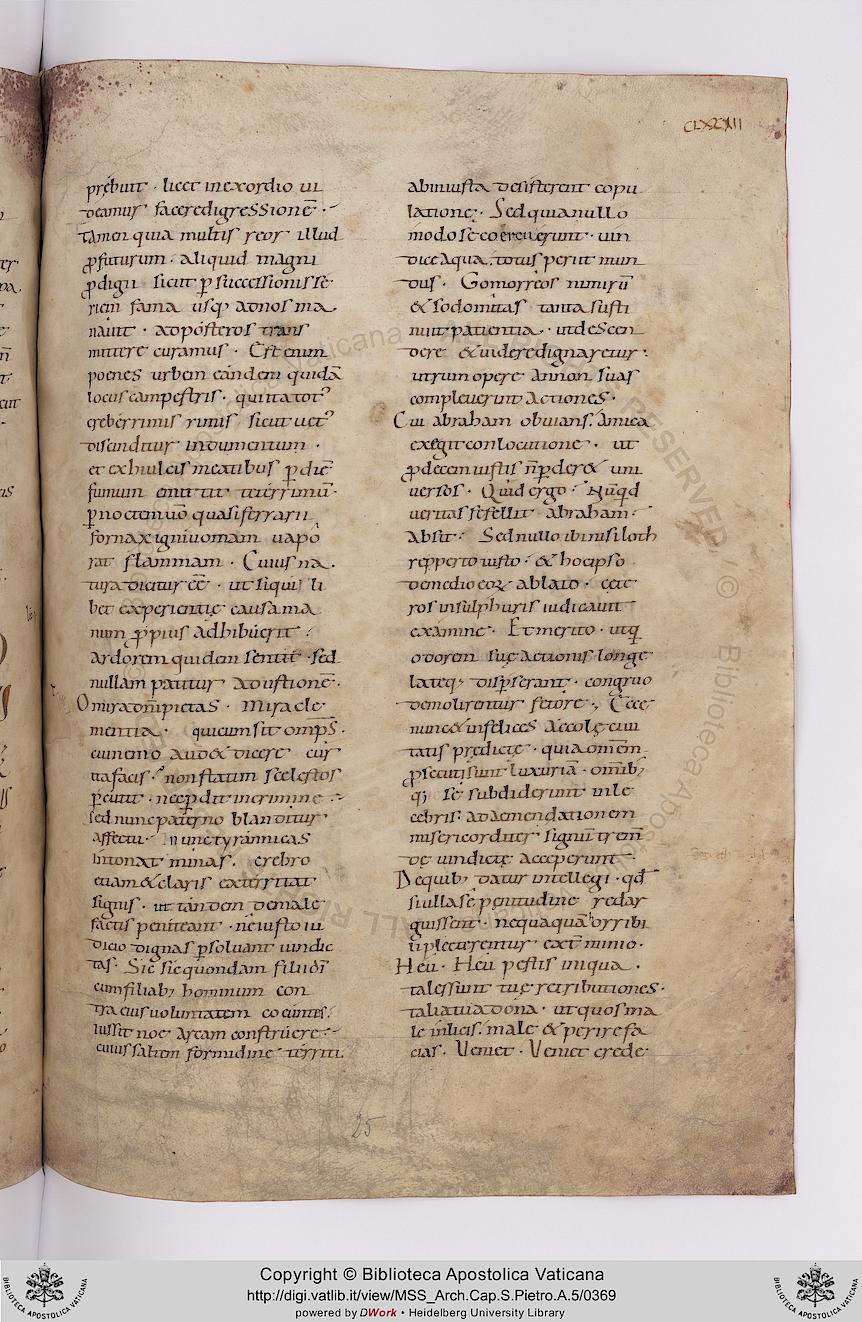 CLXXXIII
prębuit · licet in exordio ui
deamur facere digressionē ·
Tamen quia multis reor illud
ꝓfuturum · aliquid magni
ꝓdigii sicut ꝑ successionis se
riem fama usq; ad nos ma
nauit · ad posteros trans
mittere curamus · Est enim
poenes urbem eandem quidā
locus campestris · qui ita tot᾽
creberrimis rimis sicut uet᾽
discinditur indumentum ·
et ex hiulcis meatibus ꝑ diē
fumum emittit teterrimū ·
ꝑ noctem uō quasi ferrarii
fornax igniuomam uapo
rat flammam · Cuius na
tura dicitur eē · ut si qui li
bet experientię causa ma
num ꝓpius adhibuerit ·
Ardorem quidem sentit · sed
nullam patitur adustionē ·
O mira dn̄i pietas · Mira cle
mentia · quicum sit omp̄s ·
cui nemo audet dicere cur
ita facis · non statim scelestos
ꝑcutit · nec ꝑdit in crimine ·
sed nunc paterno blanditur
affectu · Nunc tyrannicas
intonat minas · crebro
etiam & claris exterritat
signis · ut tandem de male
factis peniteant · ne iusto iu
dicio dignas ꝑsoluant uindic
tas · Sic sic quondam filii dī
cum filiab; hominum con
tra eius uoluntatem coeuntes ·
iussit noe arcam construere ·
cuius saltem formidine territi
ab iniusta desisterent copu
latione · Sed quia nullo
modo se coercuerunt · uin
dice aqua · totus periit mun
dus · Gomorreos nimirū
& sodomitas tanta susti
nuit patientia · ut descen
dere & uidere dignaretur ·
utrum opere an non suas
compleuerunt actiones ·
Cui abraham obuians · amica
exegit conlocutione · ut
ꝓ decem iustis n̄ ꝑderet uni
uersos · Quid ergo · Nūqd
ueritas fefellit abraham ·
Absit · Sed nullo ibi nisi loth
repperto iusto · & hoc ipso
de medio eoꝝ ablato · cete
ros in sulphuris iudicauit
examine · Et merito · utq;
odorem suę actionis longe
lateq; disꝑserant · congruo
demolirentur fetore · Ecce
nunc & infelices accolę ciui
tatis prędictę · quia omem
ꝓsecuti sunt luxuriā · omib;
q; se subdiderunt inle
cebris · ad emendationem
misericorditer signū tremen
dę uindictę acceperunt ·
De quib; datur intellegi · qd
si ulla se penitudine redar
guissent · nequaquā horribi
li plecterentur extminio ·
Heu · Heu pestis iniqua ·
tales sunt tuę retributiones ·
talia tua dona · ut quos ma
le inlicis · male & perire fa
cias · Veniet · Veniet crede
25
Copyright © Biblioteca Apostolica Vaticana
http://digi.vatlib.it/view/MSS_Arch.Cap.S.Pietro.A.5/0369
powered by DWork • Heidelberg University Library